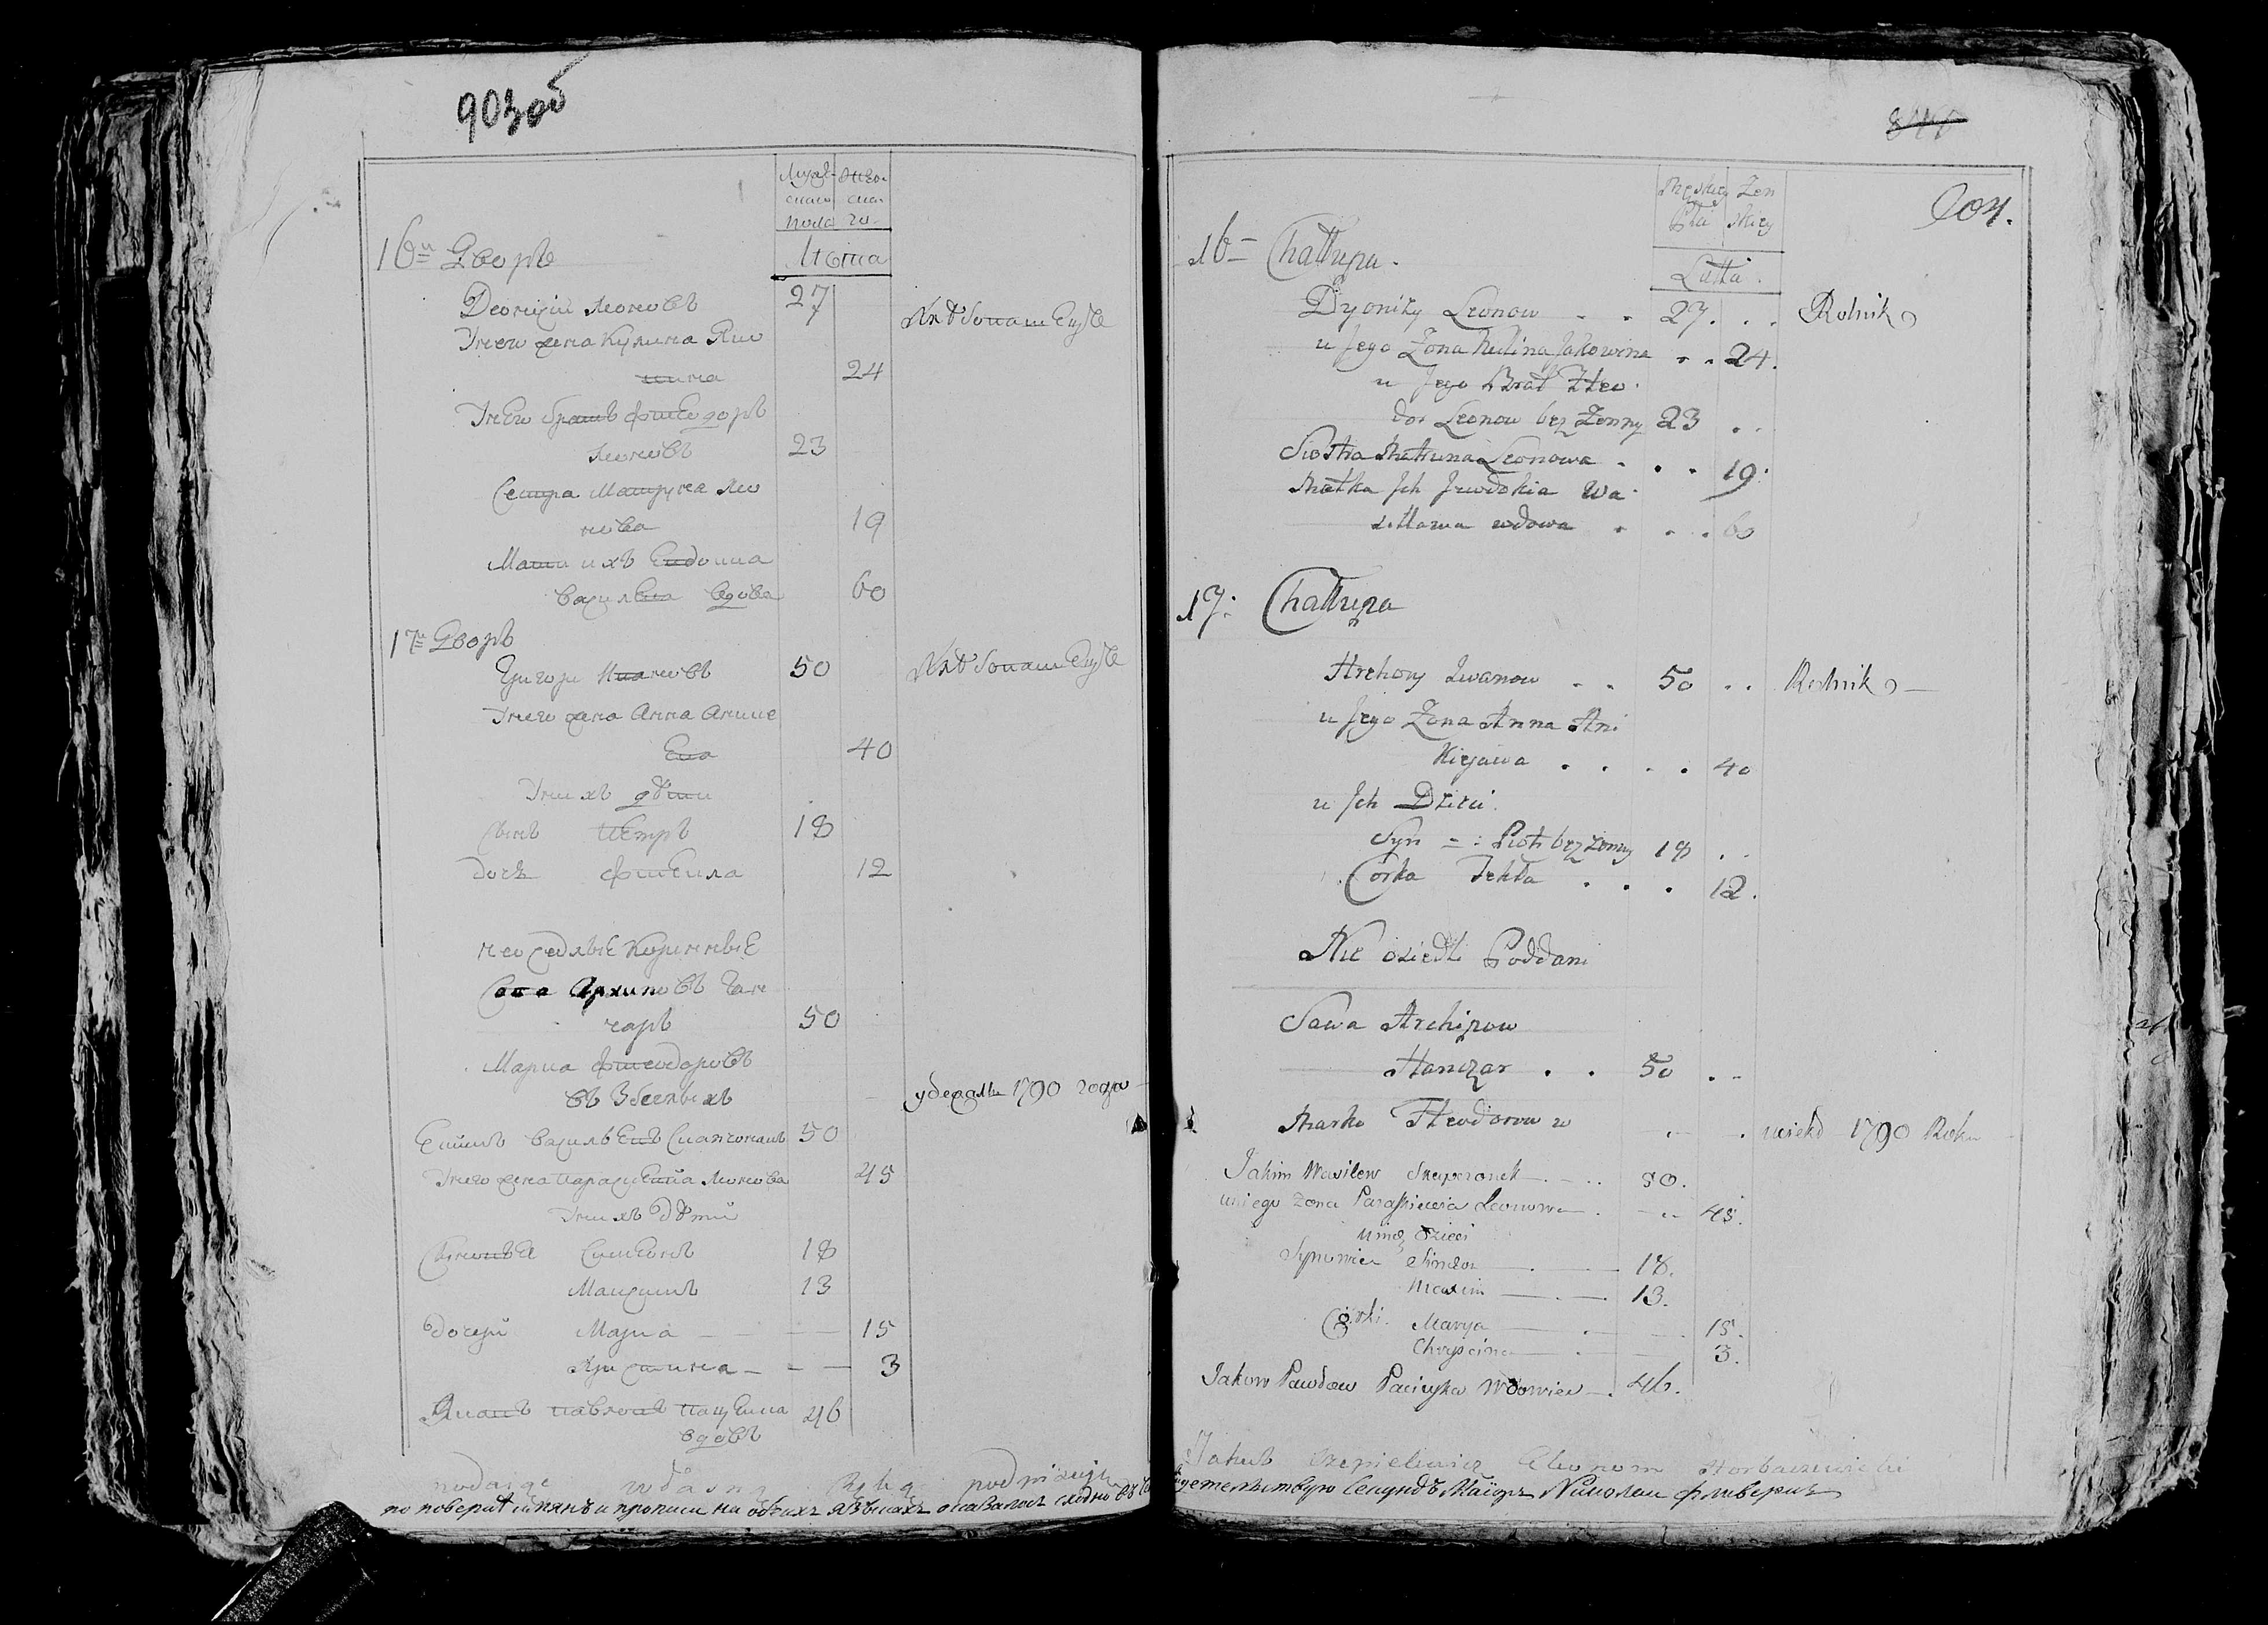 903об
Мужеска пола
Женска го
Лѣта
16й Дворъ
Деонисій Леоновъ 27
Унего жена Кулина Яко
вина 24
Унего братъ Фтеодоръ
Леоновъ 23
Сестра Матруна Лео
нова 19
Мати ихъ Евдокиа
Василева вдова 60
17й Дворъ
Григори Ивановъ 50
Унего жена Анна Аники
ева 40
Унихъ дѣти
Сынъ Петръ 18
Дочь Фтекла 12
неоседлые
Сава Архиповъ Ган
чаръ 50
Марка Фтеодоровъ
въ Збеглыхъ
убежалъ 1790 года
Екимъ Васильевъ 50
Унего жена Параскевиа Леонова 45
Унихъ Дѣтей
Сыновья Симеонъ 18
Максимъ 13
Дочери Мариа 15
Христина 3
Яковъ Павловъ Пацукева 46
вдовъ
podaję własną ręką podpisuję
по поверкѣ и прописи на обѣихъ языкахъ оказалось сходно въ
904.
Męskiey Płci
Żen skiey
Latta
16 Chattupa.
Dyonizy Leonow 27. Rolnik
u Jego Zona Kulina Jakowina 24.
u Jego Brat Hteo
dor Leonow bez Zonny 23
Siostra Matruna Leonowa 19.
Matka Jch Jewdokia Wa
silewa wdowa 60
17. Chattupa
Hrehory Iwanow 50 Rolnik
u Jego Zona Anna Ani
kiejawa 40
u Jch Dzieci
Syn Piotr bez zonny 18
Corka Tekla 12.
Nie osiedli Poddani
Sawa Archipow
Hanczar 50
Marko Hteodorow
uciekł 1790 Roku
Jakim Wasilew 50.
uniego żona Paraskiewia Leonowa 45.
unich dzieci
Synowie Simeon 18.
Maxim 13.
Córki Marya 15.
Chrystina 3.
Jakow Pawłow Paciuka Wdowiec 46.
Jakub Ekonom Horbacewicki
Секундъ Маіоръ Николай